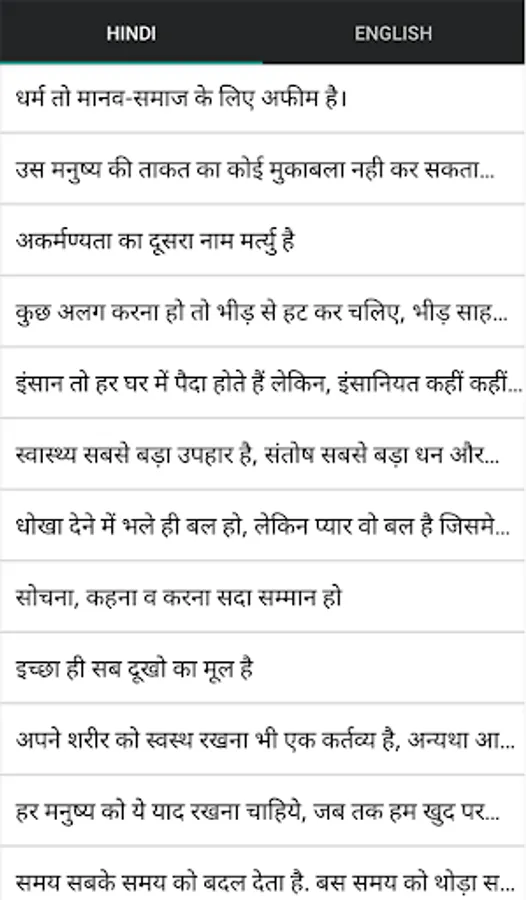 HINDI
ENGLISH
धर्म तो मानव-समाज के लिए अफीम है।
उस मनुष्य की ताकत का कोई मुकाबला नही कर सकता...
अकर्मण्यता का दूसरा नाम मर्त्यु है
कुछ अलग करना हो तो भीड़ से हट कर चलिए, भीड़ साह...
इंसान तो हर घर में पैदा होते हैं लेकिन, इंसानियत कहीं कहीं...
स्वास्थ्य सबसे बड़ा उपहार है, संतोष सबसे बड़ा धन और...
धोखा देने में भले ही बल हो, लेकिन प्यार वो बल है जिसमे...
सोचना, कहना व करना सदा सम्मान हो
इच्छा ही सब दूखो का मूल है
अपने शरीर को स्वस्थ रखना भी एक कर्तव्य है, अन्यथा आ...
हर मनुष्य को ये याद रखना चाहिये, जब तक हम खुद पर...
समय सबके समय को बदल देता है. बस समय को थोड़ा स...